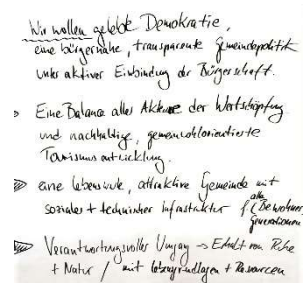 Wir wollen gelebte Demokratie,
eine bürgernahe, transparente Gemeindepolitik
unter aktiver Einbindung der Bürgerschaft.
Eine Balance aller Akteure der Wertschöpfung
und nachhaltige, gemeinwohlorientierte
Tourismusentwicklung.
eine lebenswerte, attraktive Gemeinde mit
sozialer + technischer Infrastruktur f. alle
(Bewohner
generationen
Verantwortungsvoller Umgang → Erhalt von Ruhe
+ Natur / mit Lebensgrundlagen + Resourcen